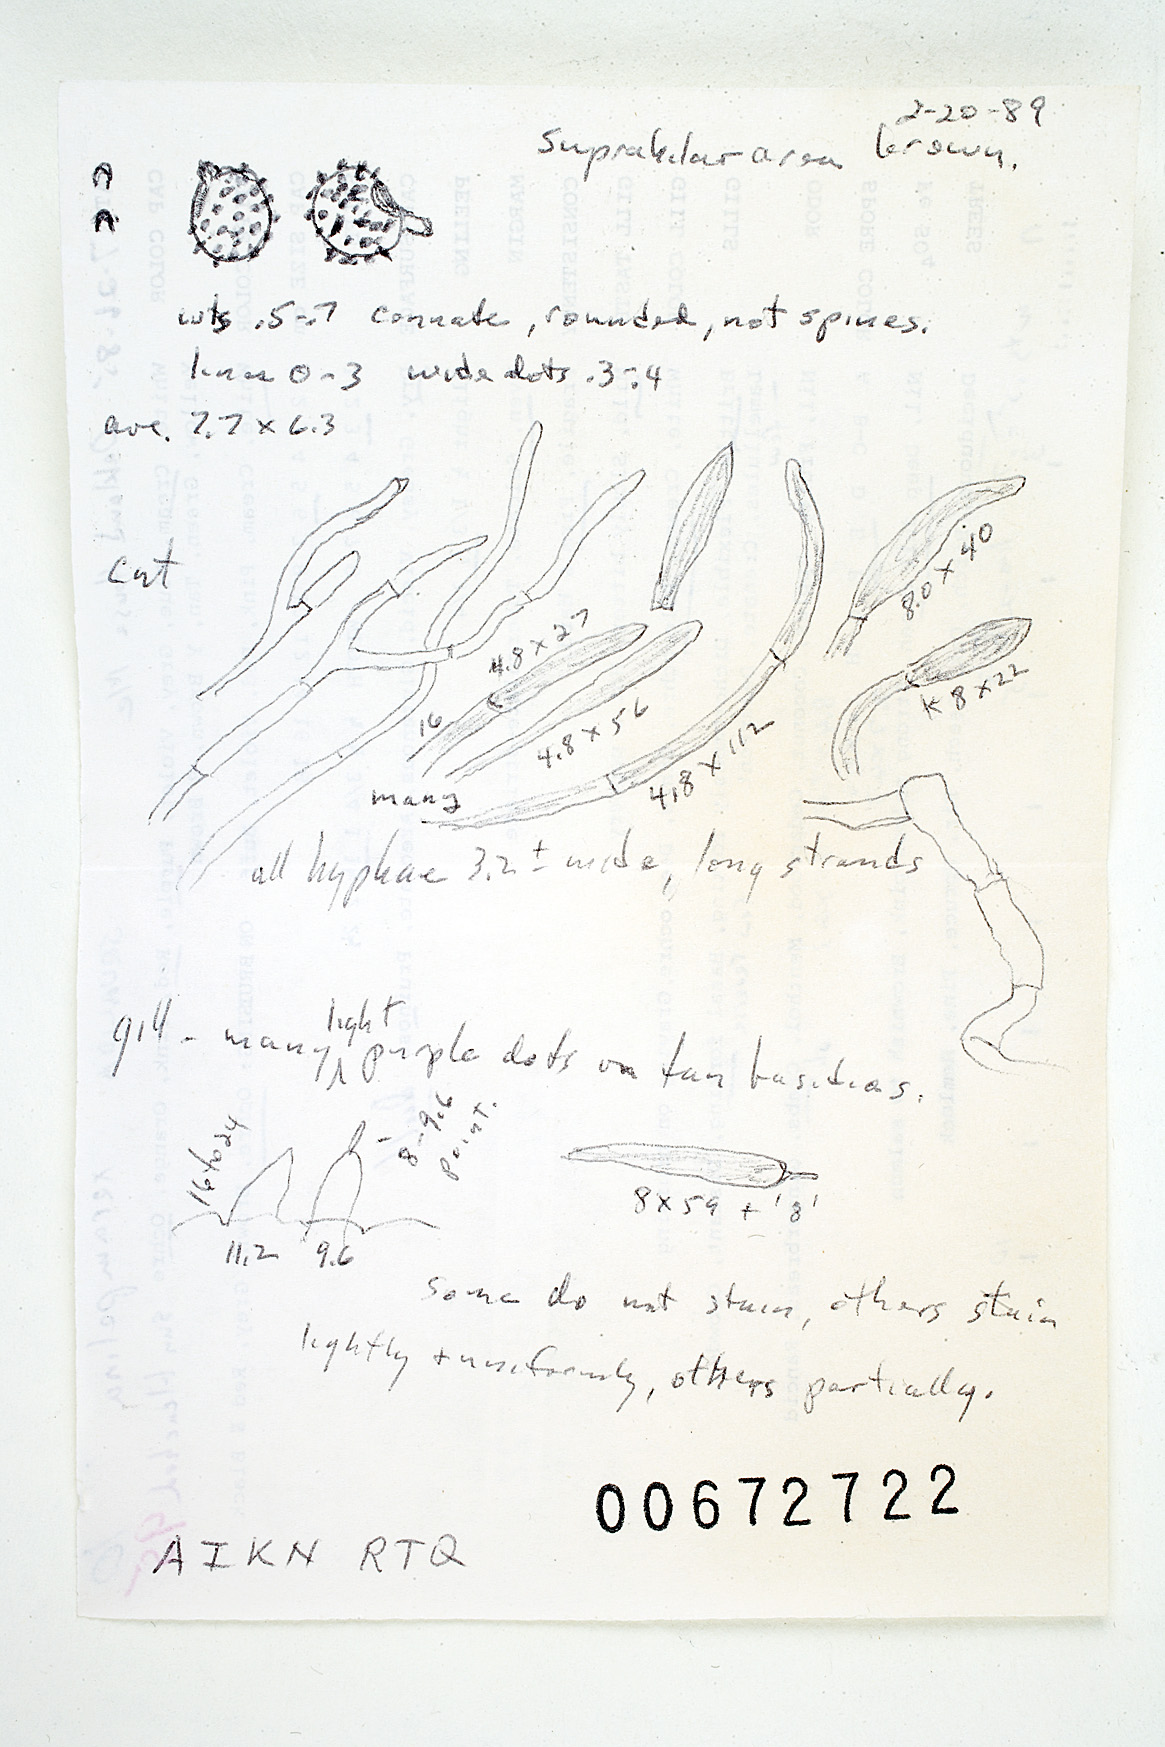 2-20-89
Suprahilar area brown.
wts .5-.7 connate, rounded, not spines.
lines 0-3 wide dots .3-.4
ave. 7.7 x 6.3
cut
8.0 x 40
4.8 x 27
8 x 22
16
4.8 x 56
4.8 x 112
many
all hyphae 3.2 ± wide, long strands
light
gill - many ^ purple dots on tan basidias.
16 to 24
8-9.6
point.
8 x 59 + '8'
11.2 9.6
Some do not stain, others stain
lightly + uniformly, others partially.
00672722
AIKN RTQ